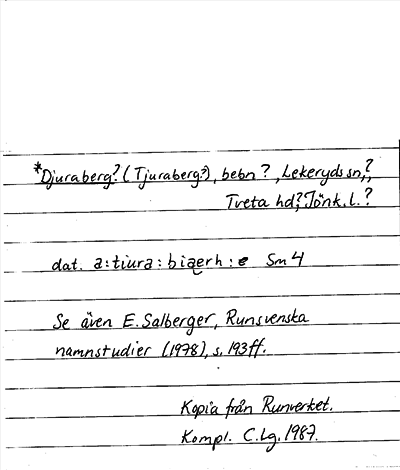 *Djuraberg? (Tjuraberg?), bebn?, Lekeryds sn,?
Tveta hd?, Jönk. l.?
dat. a:tiura:biaerh:e Sm 4
Se även E. Salberger, Runsvenska
namnstudier (1978), s. 193ff.
Kopia från Runverket.
Kompl. C. Lg. 1987.